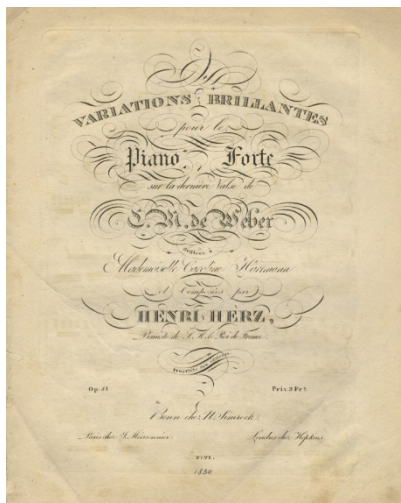 VARIATIONS BRILLANTES
pour le
Piano Forte
sur la dernière Valse de
C. M. de Weber
dédiées à
Mademoiselle Caroline Hartmann
et Composées par
HENRI HERZ,
Pianiste de S. M. le Roi de France.
Propriété des Editeurs
Op. 51
Prix 3 Frs.
Bonn chez N. Simrock.
Paris chez J. Meissonnier.
Londres chez
1830